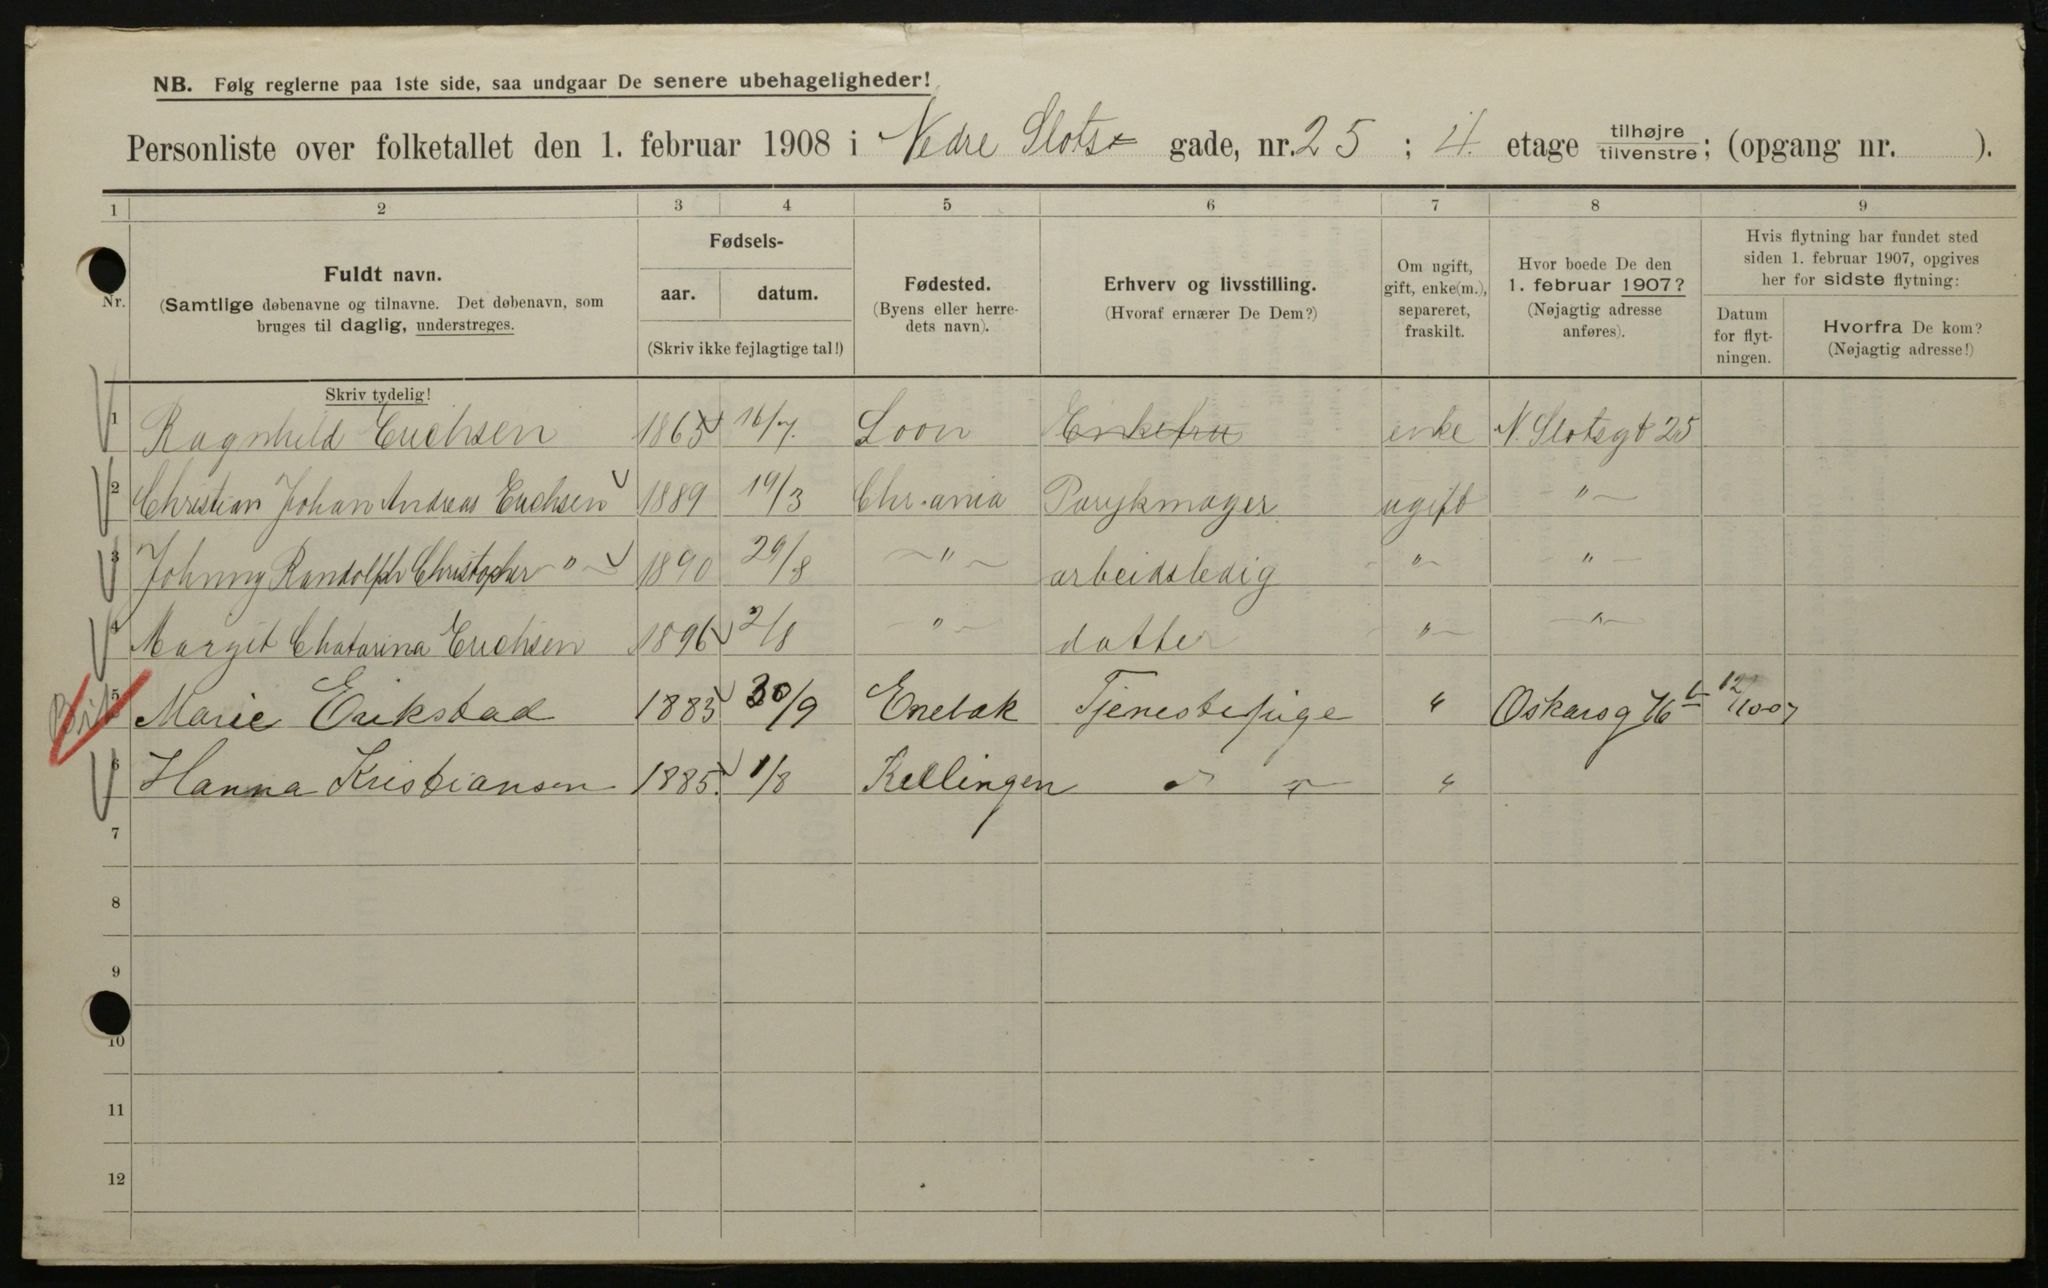 NB. Følg reglerne paa 1ste side, saa undgaar De senere ubehageligheder!
Personliste over folketallet den 1. februar 1908 i Nedre Slots- gade, nr. 25 ; 4. etage tilhøjre/tilvenstre; (opgang nr. ).
1 2 3 4 5 6 7 8 9
Nr.
Fuldt navn.
(Samtlige døbenavne og tilnavne. Det døbenavn, som
bruges til daglig, understreges.
Skriv tydelig!
Fødsels-
aar. datum.
(Skriv ikke fejlagtige tal!)
Fødested.
(Byens eller herre-
dets navn).
Erhverv og livsstilling.
(Hvoraf ernærer De Dem?)
Om ugift,
gift, enke(m.),
separeret,
fraskilt.
Hvor boede De den
1. februar 1907?
(Nøjagtig adresse
anføres).
Hvis flytning har fundet sted
siden 1. februar 1907, opgives
her for sidste flytning:
Datum
for flyt-
ningen.
Hvorfra De kom?
(Nøjagtig adresse!)
1 Ragnhild Erichsen 1865 16/7. Loon Enkefru enke N. Slotsgt 25
2 Christian Johan Andreas Erichsen 1889 19/3 Chr.ania Parykmager ugift - " -
3 Johnny Randolph Christopher - " - 1890 29/8 - " - arbeidsledig - " - - " -
4 Margit Chatarina Erichsen 1896 2/8 - " - datter - " - - " -
5 Marie Erikstad 1883 30/9 Enebak Tjenestepige " Oskarsg 76 b
6 Hanna Kristiansen 1885. 1/8 Rellingen "
7
8
9
10
11
12